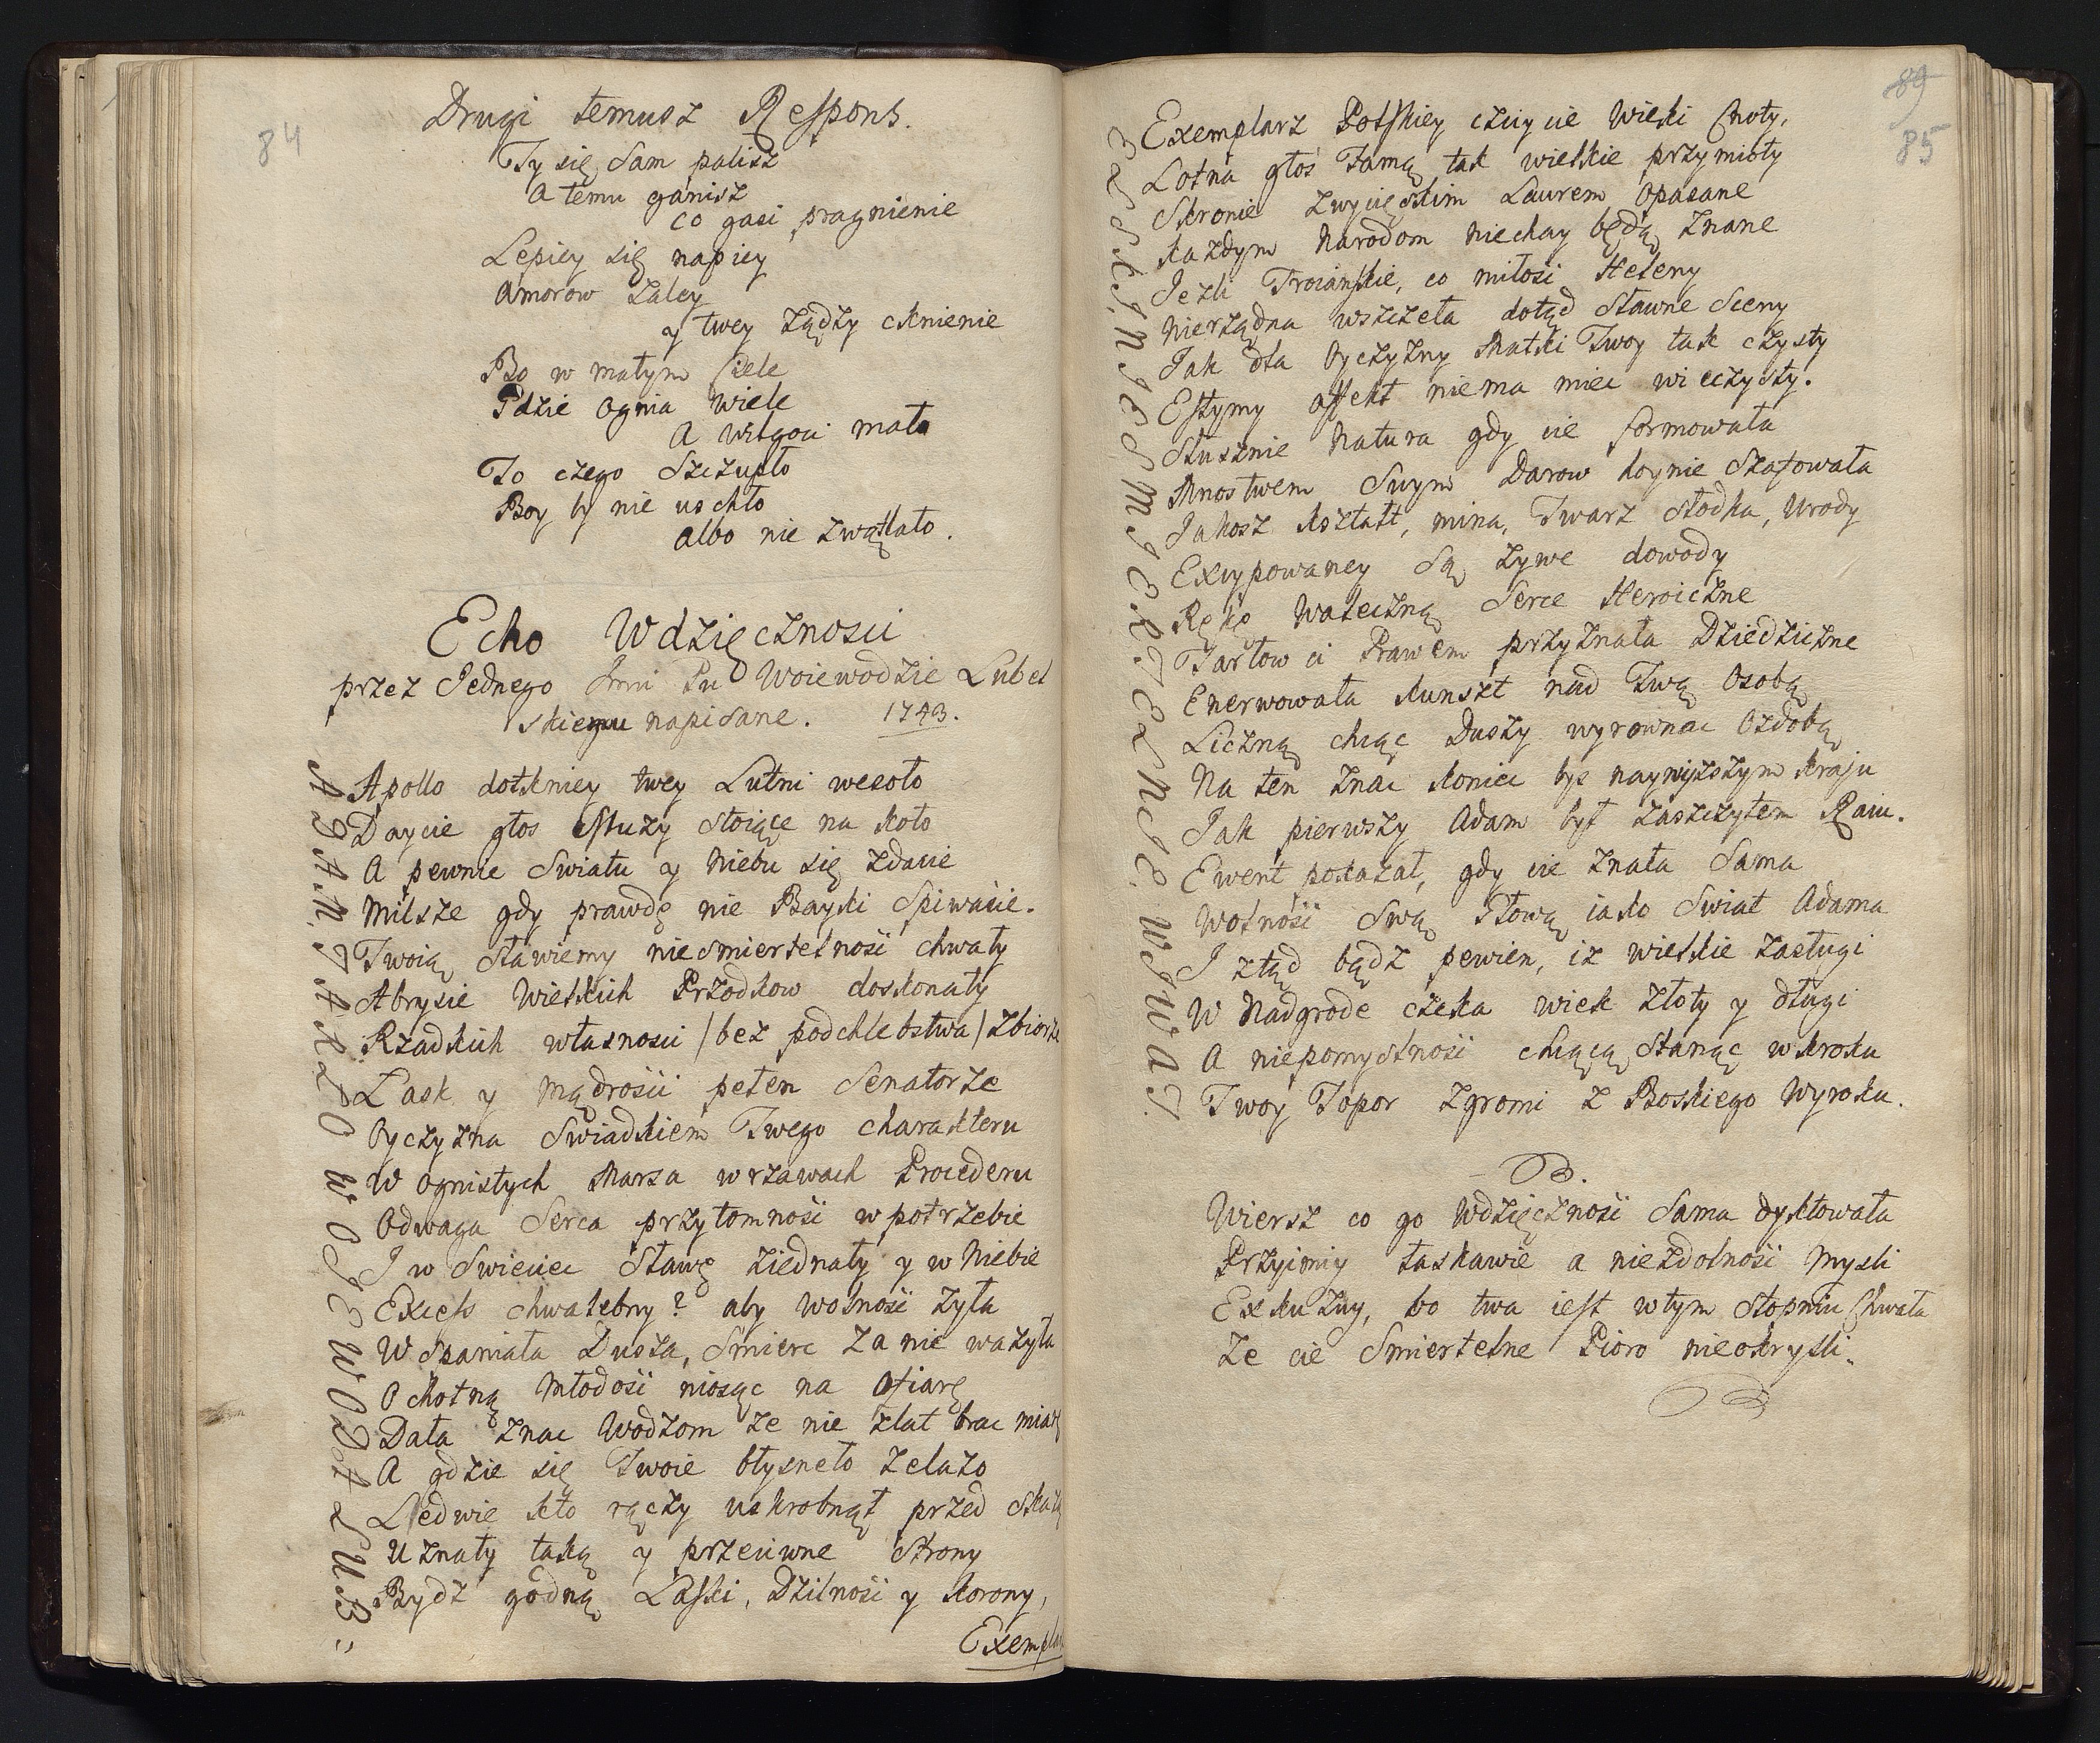 84
Drugi temusz Respons.
Ty się Sam palisz
A temu ganisz
co gasi pragnienie
Lepiey się napiey
Amorow zaley
y twey żądzy cknienie
Bo w małym Ciele
Gdzie Ognia wiele
A wilgoci mało
To czego Szczupło
Boy by nie uschło
albo nie zwątlało.
Echo Wdzięcznosci
przez Jednego Jmci Pu Woiewodzie Lubel
skiemu napisane. 1743.
ADAM TARŁO WOIEWODA LUB:
Apollo dotkniey twey Lutni wesoło
Daycie głos Muzy stoiące na koło
A pewnie Swiatu y Niebu się zdacie
Milsze gdy prawdę nie Bayki Spiwacie.
Twoią sławiemy niesmiertelność chwały
Abrysie Wielkich Przodkow doskonały
Rzadkich własnosci /bez podchlebstwa/ zbiorze
Łask y Mądrości pełen Senatorze
Oyczyzna Swiadkiem Twego charakteru
W Ognistych Marsa wrzawach Procederu
Odwaga Serca przytomność w potrzebie
I w Swiecie Sławę ziednały y w Niebie
Excess chwalebny? aby wolność żyła
Wspaniała Dusza, Smierc za nie ważyła
Ochotną Młodość niosąc na Ofiarę
Dała znac Wodzom że nie zlat brac miarę
A gdzie się Twoie błysneło żelazo
Ledwie kto rączy uskrobnął przed skazą
Uznały taką y przeciwne Strony
Bydz godną Laski, Dzilność y Korony,
Exemplarz
89
85
EL SKI, NIESMIERTELNIE WIWAT.
Exemplarz Polskiey czcicie Wieki Cnoty,
Lotna głoś Famą tak wielkie przymioty
Skronie zwycięskim Laurem Opasane
Każdym Narodom niechay będą znane
Jezli Troiańskie, co miłość Heleny
Nierządna wszczeła dotąd sławne Sceny
Jak dla Oyczyzny Matki Twoy tak czysty
Estymy affekt niema miec wieczysty.
Słusznie Natura gdy cie formowała
Mnostwem Swym Darow hoynie Szafowała
Jakosz kształt, mina, Twarz słodka, Urody
Excypowaney Są żywe dowody
Rękę Waleczną Serce Heroiczne
Tarłow ci Prawem przyznała Dziedziczne
Enerwowała kunszt nad Twą Osobą
Liczną chcąc Duszy wyrownac Ozdobą
Na ten znac koniec bys naywyższym kraju
Jak pierwszy Adam był zaszczytem Raiu.
Ewent pokazał, gdy cie znała Sama
Wolność Swą Głową iako Swiat Adama
I ztąd bądz pewien, iz wielkie zasługi
W Nadgrode czeka wiek złoty y długi
A niepomyslność chcącą stanąc w kroku
Twoy Topor zgromi z Boskiego Wyroku.
Wiersz co go Wdzięczność Sama dyktowała
Przyimiy łaskawie a niezdolność Mysli
Exkuzuy, bo twa iest wtym stopniu Chwała
Ze cie Smiertelne Pioro nieokrysli.